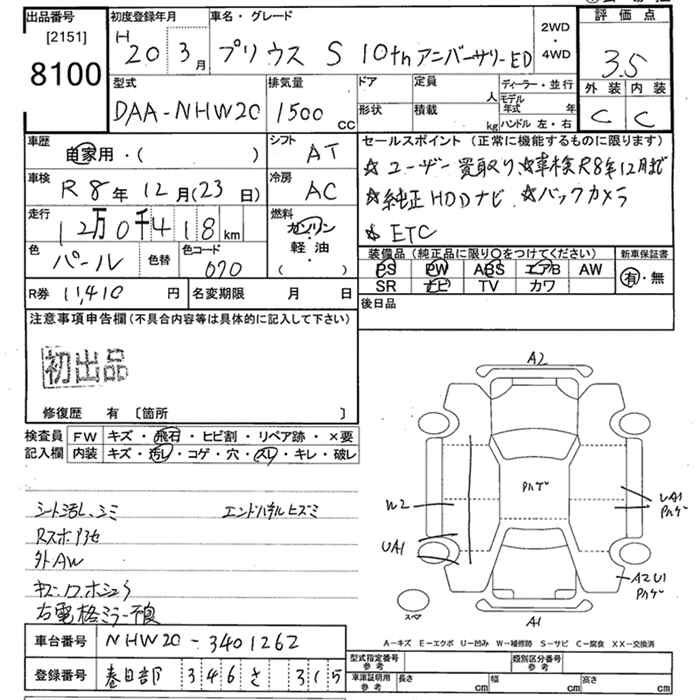 出品番号 初度登録年月 車名・グレード 2WD・4WD 評価点
[2151] 8100
H 20 3月 プリウス S 10th アニバーサリーED 3.5
型式 排気量 ドア 定員 人 ディーラー・並行 外装 内装
DAA-NHW20 1500cc 形状 積載 kg モデル年式 年 ハンドル 左・右 C C
車歴 自家用・( ) シフト AT セールスポイント (正常に機能するものに限ります)
☆ユーザー買取り ☆車検R8年12月まで
車検 R8年12月(23日) 冷房 AC ☆純正HDDナビ ☆バックカメラ
走行 12万0千418km 燃料 ガソリン 軽・油 ( ) ☆ETC
色 パール 色替 色コード 070
装備品 (純正品に限り○をつけてください) 新車保証書
PS PW ABS エアB AW 有・無
SR ナビ TV カワ
R券 11,410円 名変期限 月 日 後日品
注意事項申告欄(不具合内容等は具体的に記入して下さい)
初出品
修復歴 有 〔箇所 〕
検査員記入欄 FW キズ・飛石・ヒビ割・リペア跡・×要
内装 キズ・汚レ・コゲ・穴・スレ・キレ・破レ
A2
Pハゲ
W2
UA1
UA1 Pハゲ
A2U1 Pハゲ
スペア
A1
シート汚レ、シミ エンドパネルヒズミ
外AW
右電格ミラー不良
A=キズ E=エクボ U=凹み W=補修跡 S=サビ C=腐食 XX=交換済
車台番号 NHW20-3401262
登録番号 春日部 346 さ 315
型式指定番号 参考 類別区分番号 参考
車庫証明用 参考 長さ cm 幅 cm 高さ cm